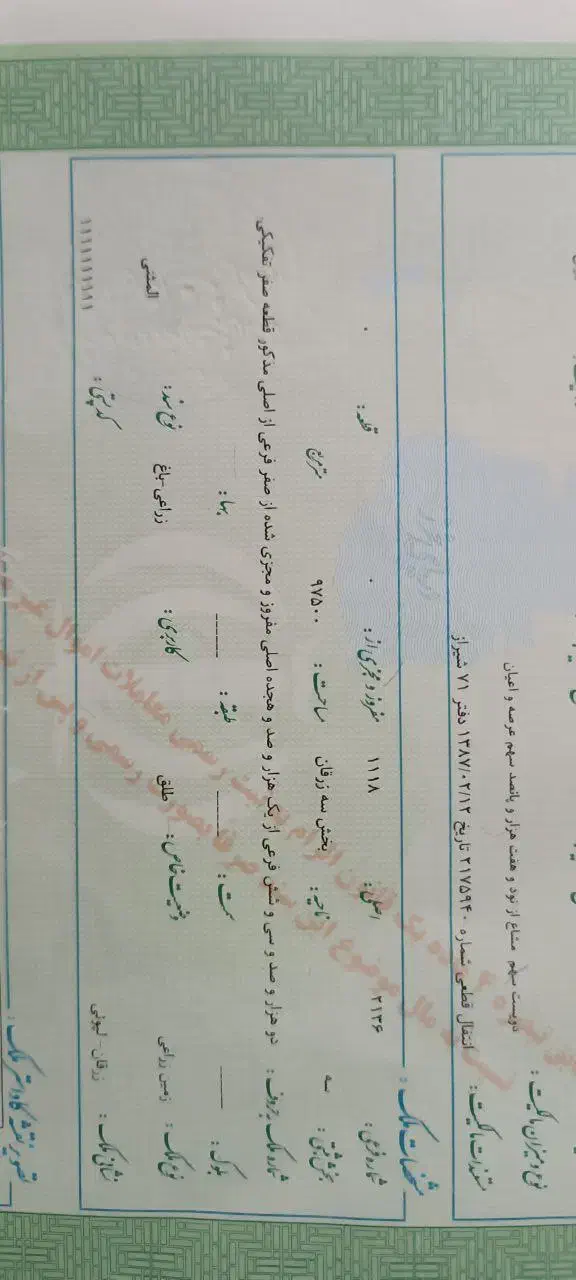 نوع و میزان مالکیت : دویست سهم مشاع از نود و هفت هزار و پانصد سهم عرصه و اعیان
مستندات مالکیت : انتقال قطعی شماره ۲۱۷۵۹۴۰ تاریخ ۱۳۸۷/۰۲/۱۲ دفتر ۷۱ شیراز
مشخصات ملک :
شماره فرعی : ۲۱۳۶ اصلی : ۱۱۱۸ مفروز و مجزی از : ۰ قطعه : ۰
بخش ثبتی : سه ناحیه : بخش سه زرقان مساحت : ۹۷۵۰۰ مترمربع
شماره ملک به حروف : دو هزار و صد و سی و شش فرعی از یک هزار و صد و هجده اصلی مفروز و مجزی شده از صفر فرعی از اصلی مذکور قطعه صفر تفکیکی.
بلوک : ------ سمت : ------ طبقه : ------ بها :
نوع ملک : زمین زراعی وضعیت خاص : طلق کاربری : زراعی-باغ نوع سند : المثنی
نشانی ملک : زرقان - لپوئی کد پستی : ۱۱۱۱۱۱۱۱۱۱
تصویر نقشه کاداستر ملک :